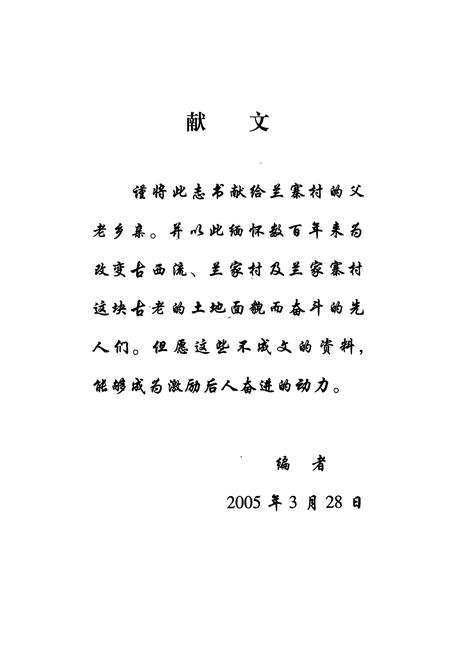 献 文
谨将此志书献给兰寨村的父
老乡亲。并以此缅怀数百年来为
改变古西流、兰家村及兰家寨村
这块古老的土地面貌而奋斗的先
人们。但愿这些不成文的资料，
能够成为激励后人奋进的动力。
编 者
2005 年 3 月 28 日